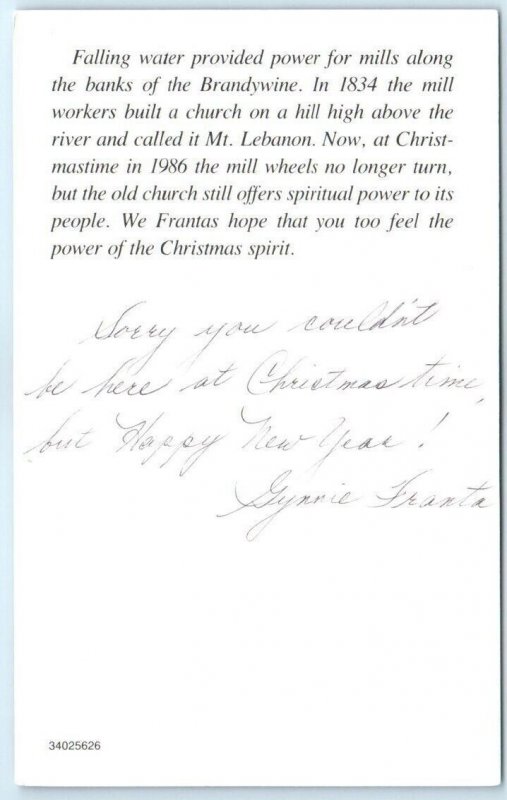 Falling water provided power for mills along
the banks of the Brandywine. In 1834 the mill
workers built a church on a hill high above the
river and called it Mt. Lebanon. Now, at Christ-
mastime in 1986 the mill wheels no longer turn,
but the old church still offers spiritual power to its
people. We Frantas hope that you too feel the
power of the Christmas spirit.
Sorry you couldn't
be here at Christmas time,
but Happy New Year!
Gynnie Franta
34025626